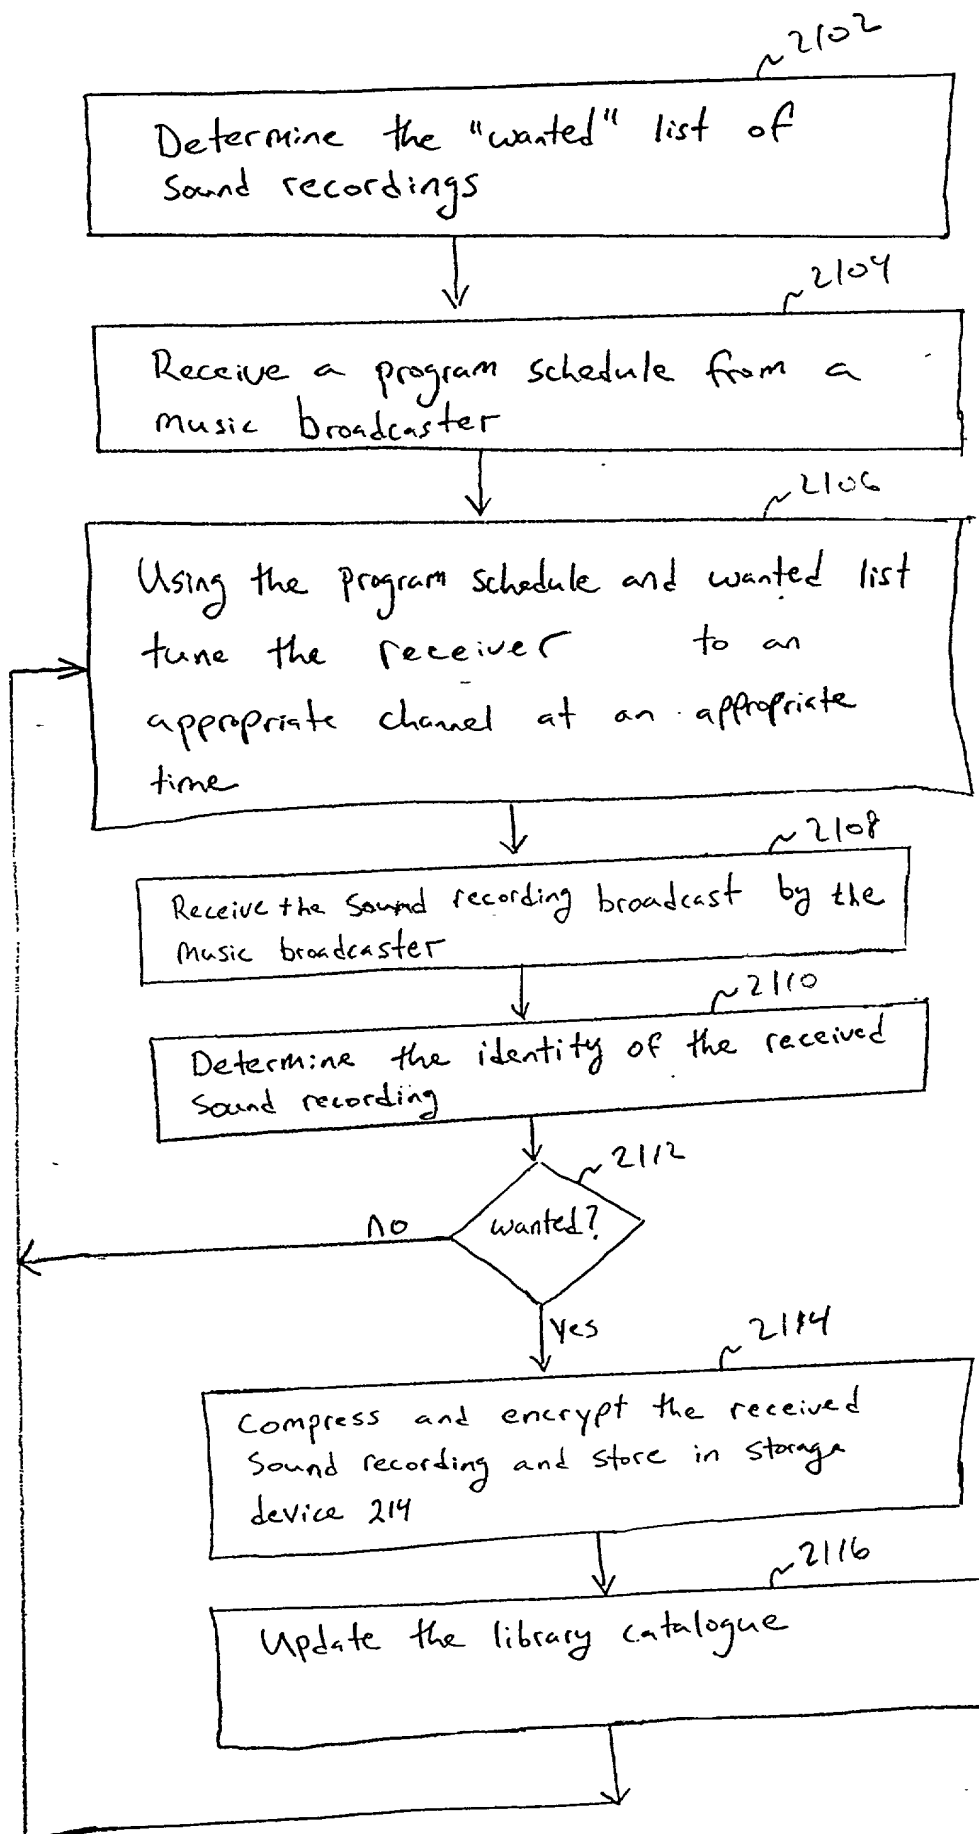 2102
Determine the "wanted" list of
Sound recordings
2104
Receive a program schedule from a
music broadcaster
2106
Using the program schedule and wanted list
tune the receiver to an
appropriate channel at an appropriate
time
2108
Receive the sound recording broadcast by the
music broadcaster
2110
Determine the identity of the received
Sound recording
2112
wanted?
no
yes
2114
Compress and encrypt the received
Sound recording and store in storage
device 214
2116
Update the library catalogue